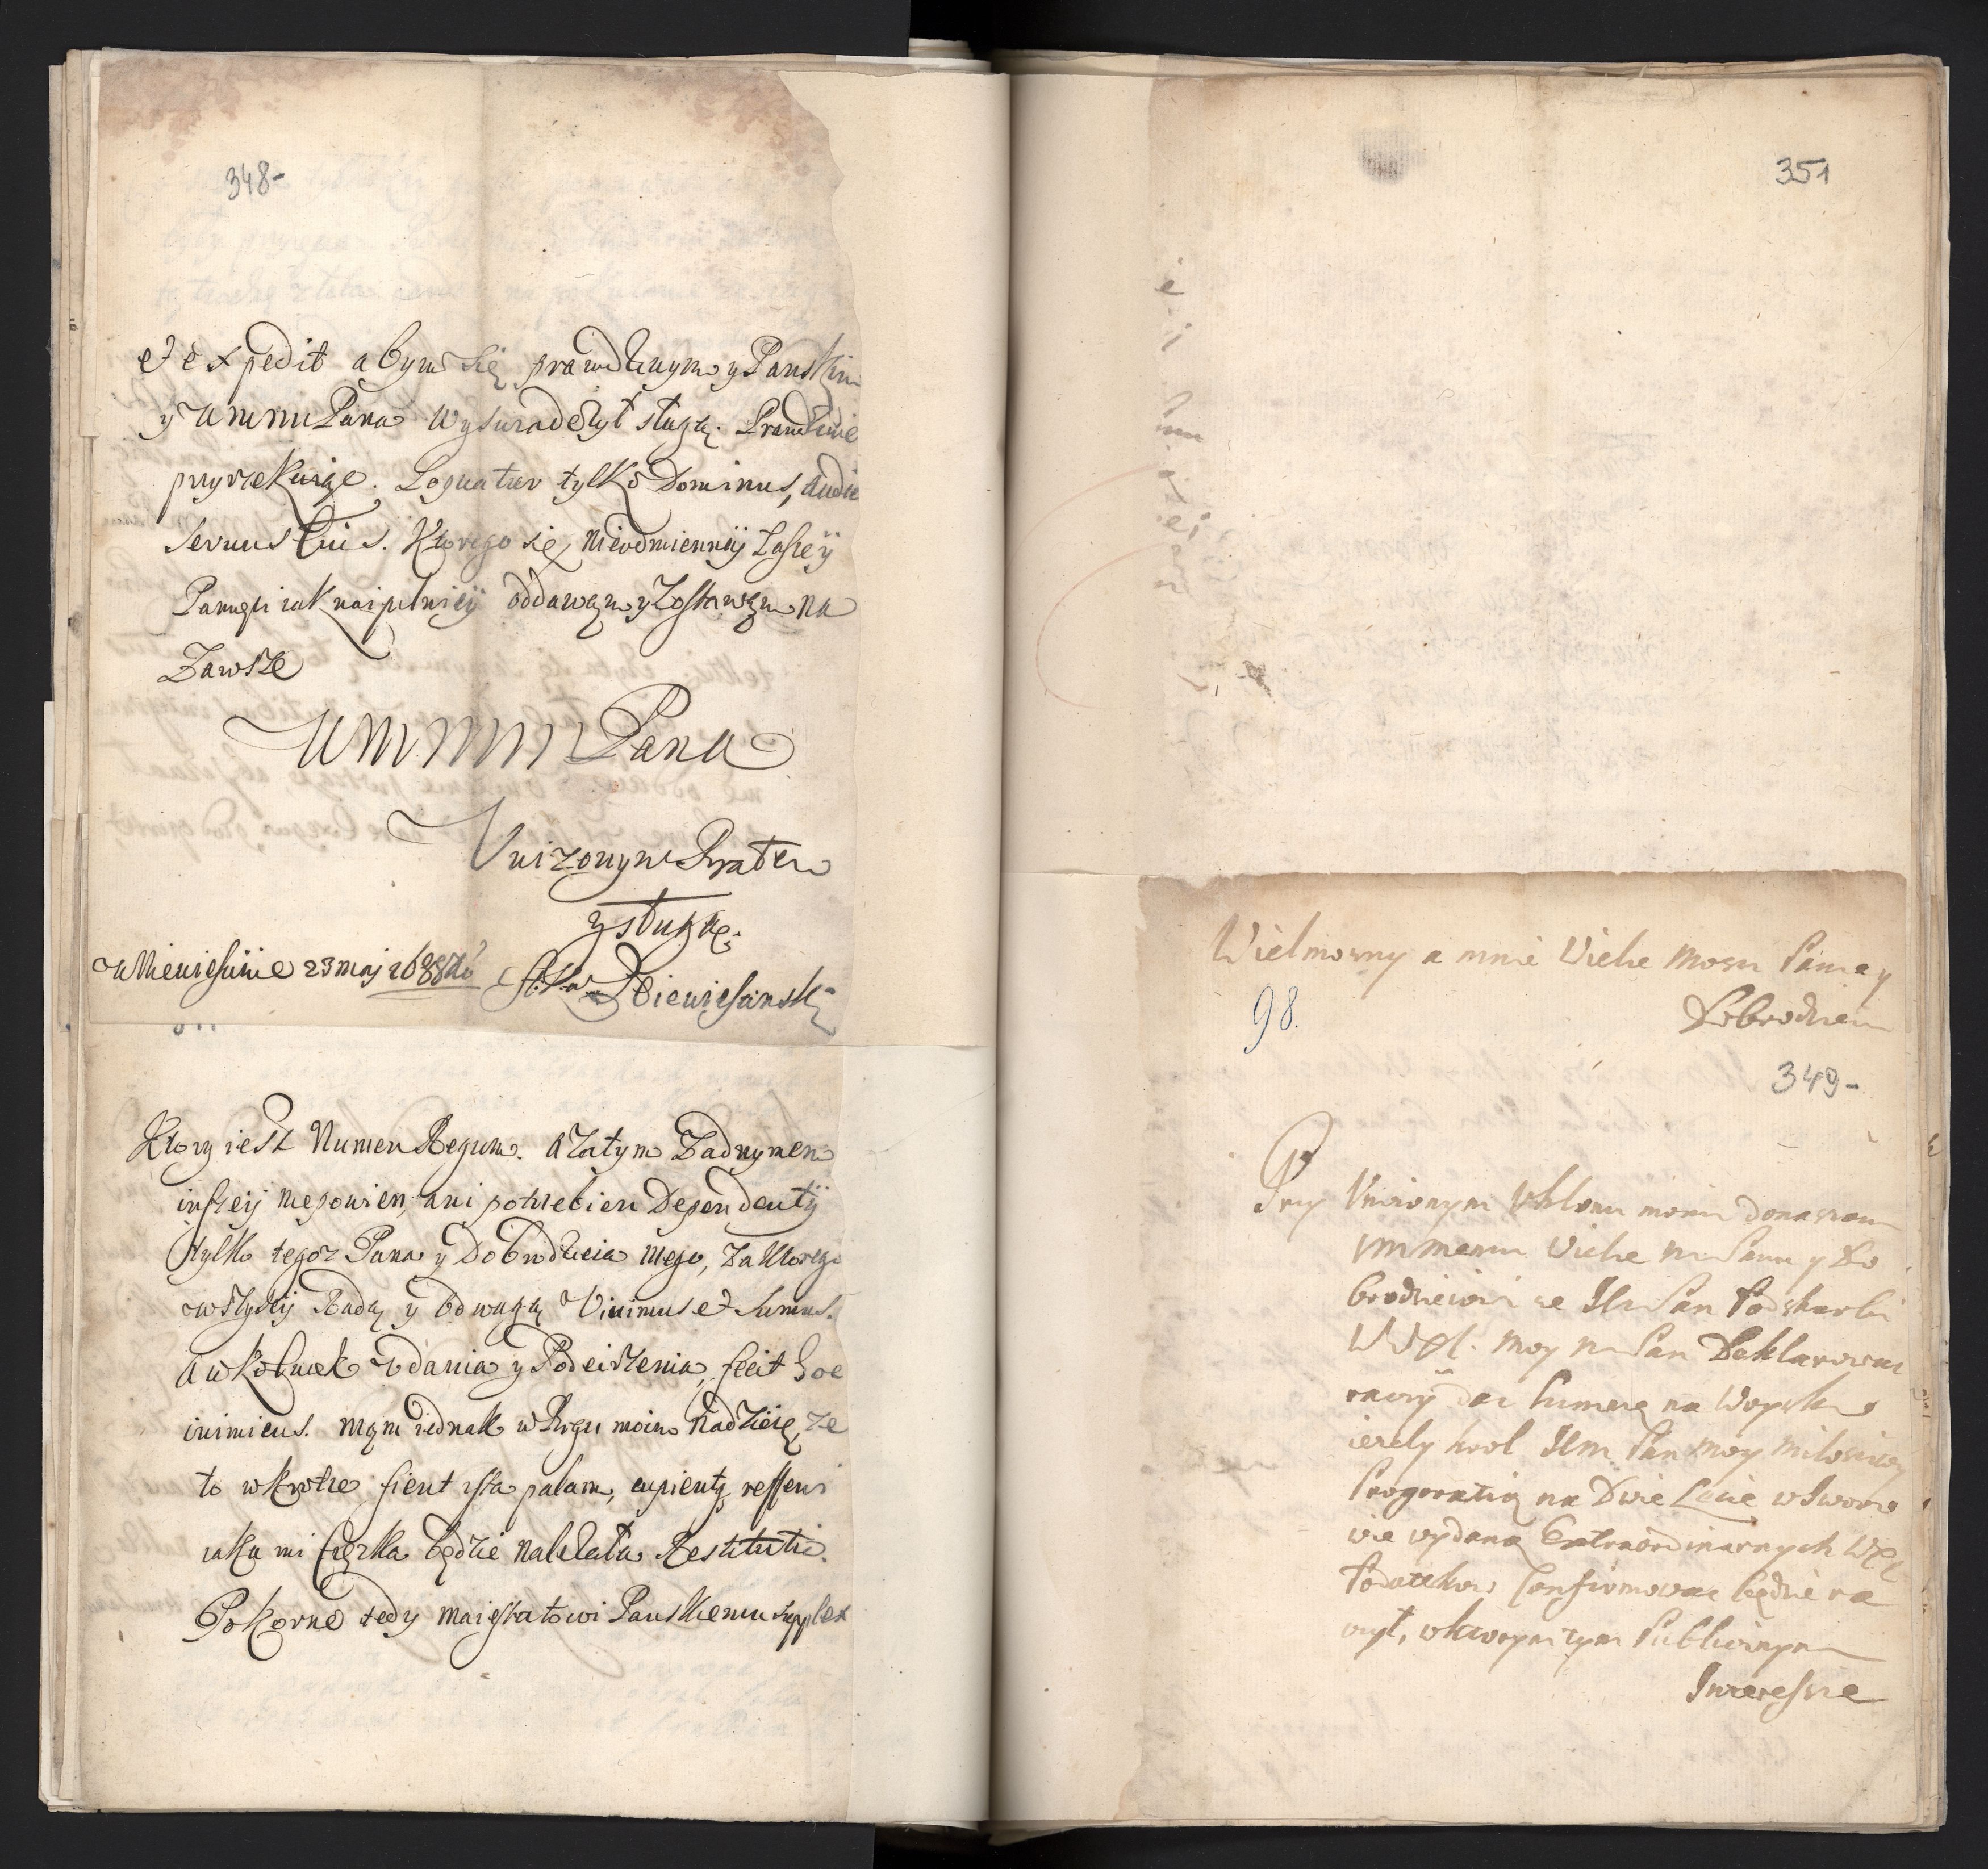 348-
et expedit abym się prawdziwym y Panskim
y UMMM Pana wyswiadczył sługą. Prawdziwie
przyrzekaiąc. Loquatur tylko Dominus, audie
servus tuus. Ktorego się nieodmienniy Łascey
Panskiey iak naipilniey oddawam y Zostawam na
Zawsze
UMMMM Pana
Unizonym Bratem
y sługą.
23 maj 1688
Ktory iest Numen Regum. A Zatym Zadnymen
inszeij niepowiem, ani potrzebien Dependentij
tylko tegoz Pana y Dobrodzieia mego, Za Ktorego
wszytkiey Radą y Odwagą Vivimus et sumus.
A wkolwiek Udania y Podeisrzenia, fecit hoc
inimicus. Mam iednak w Bogu moim Nadzieię, ze
to wkrotce fient ista palam, cupientq refferri
iaka mi Ciężka będzie należała Restitutio.
Pokorne tedy Maiestatowi Panskiemu supplex
351
Wielmozny a mnie Wielce Mosci Panie y
Dobrodzieiu
98.
349-
Przy Unizonym Ukłonie moim donaszam
Wielce M Panu y Do
brodzieiowi ze Jm Pan Podskarbi
WXL. moy M Pan Deklarowac
raczył dac summę na Woysko
iezely Krol Jm Pan moy Miłosciwy
Prorogatią na Dwie Lecie w Iworo
wie wydaną Extraordinarnych WXL
Podatkow Confirmowac będzie ra
czył, w ktorym tym Publicznym
Interessie